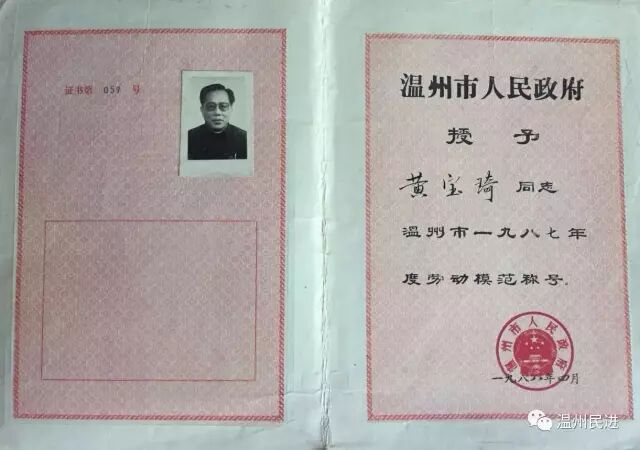 证书第 059 号
温州市人民政府
授予
黄宝琦 同志
温州市一九八七年
度劳动模范称号。
温州市人民政府
一九八八年四月
温州民进